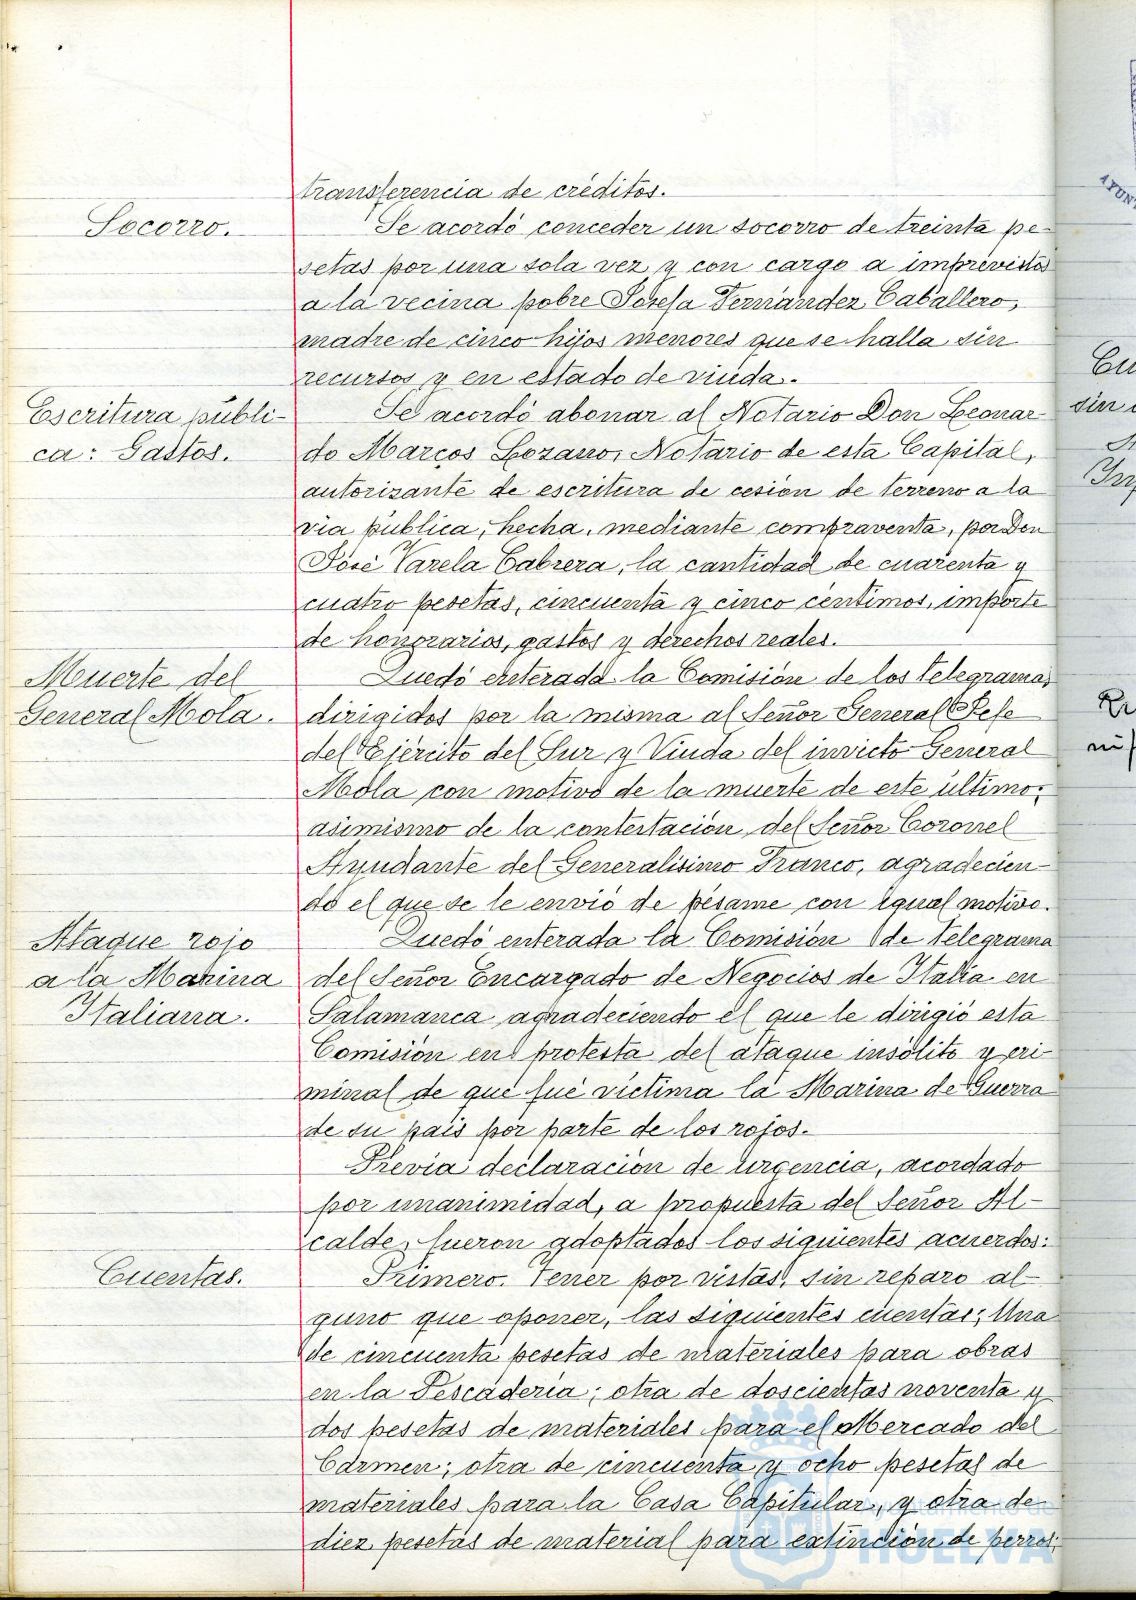 transferencia de créditos.
Socorro.
Se acordó conceder un socorro de treinta pe-
setas por una sola vez y con cargo a imprevistos
a la vecina pobre Josefa Fernández Caballero,
madre de cinco hijos menores que se halla sin
recursos y en estado de viuda.
Escritura públi-
ca: Gastos.
Se acordó abonar al Notario Don Leonar-
do Marcos Lozano, Notario de esta Capital,
autorizante de escritura de cesión de terreno a la
via pública, hecha, mediante compraventa, por Don
José Varela Cabrera, la cantidad de cuarenta y
cuatro pesetas, cincuenta y cinco céntimos, importe
de honorarios, gastos y derechos reales.
Muerte del
General Mola.
Quedó enterada la Comisión de los telegramas
dirigidos por la misma al Señor General Jefe
del Ejército del Sur y Viuda del invicto General
Mola con motivo de la muerte de este último;
asimismo de la contestación del Señor Coronel
Ayudante del Generalísimo Franco, agradecien-
do el que se le envió de pésame con igual motivo.
Ataque rojo
a la Marina
Italiana.
Quedó enterada la Comisión de telegrama
del Señor Encargado de Negocios de Italia en
Salamanca agradeciendo el que le dirigió esta
Comisión en protesta del ataque insólito y cri-
minal de que fué víctima la Marina de Guerra
de su país por parte de los rojos.
Previa declaración de urgencia, acordado
por unanimidad, a propuesta del Señor Al-
calde, fueron adoptados los siguientes acuerdos:
Cuentas.
Primero. Tener por vistas, sin reparo al-
guno que oponer, las siguientes cuentas; Una
de cincuenta pesetas de materiales para obras
en la Pescadería; otra de doscientas noventa y
dos pesetas de materiales para el Mercado del
Carmen; otra de cincuenta y ocho pesetas de
materiales para la Casa Capitular, y otra de
diez pesetas de material para extinción de perros;
Ayuntamiento de
HUELVA
AYUN
Cu
sin